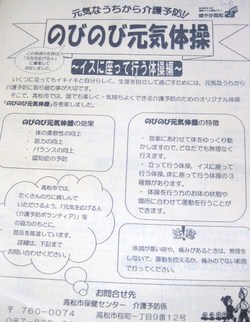 元気なうちから介護予防!!
のびのび元気体操
～イスに座って行う体操編～
いくつになってもイキイキと自分らしく、生涯を自立して過ごすためには、元気なうちから
介護予防に取り組む事が大切です。
そこで、高松市では、誰でも楽しく・気持ちよくできる介護予防のためのオリジナル体操
『のびのび元気体操』を考案しました。
のびのび元気体操の効果
・体の柔軟性の向上
・筋力の向上
・バランスの向上
・認知症の予防
のびのび元気体操の特徴
・音楽にあわせて体をゆっくり動
かしますので、どなたでも無理な
く行えます。
・立って行う体操、イスに座って
行う体操、床に座って行う体操の3
種類があります。
・体操を行う方のお体の状態や
場所に合わせて運動を行うことが
できます。
高松市では、
たくさんの方に親しんで
いただけるよう、「元気を広げる人
(介護予防ボランティア)」等
の協力のもとに、
普及を推進しています。
詳細は、下記まで
お問い合わせください。
体調が悪い時や、痛みがあるときは、無理を
しないで、運動を控えるか、痛みのでない範囲
で行ってください。
お問合せ先
高松市保健センター 介護予防係
〒 760-0074
高松市桜町一丁目9番12号